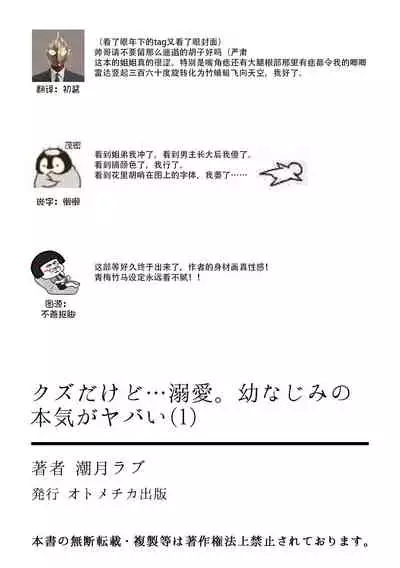 （看了眼年下的tag又看了眼封面）
帅哥请不要留那么邋遢的胡子好吗（严肃
这本的姐姐真的很涩，特别是嘴角痣还有大腿根部那里有痣都令我的唧唧
雷达竖起三百六十度旋转化为竹蜻蜓飞向天空，我好了.
翻译：初鹿
茂密
看到姐弟我冲了，看到男主长大后我傻了.
看到搞颜色了，我行了.
看到花里胡哨在图上的字体，我萎了……
嵌字：懒懒
这部等好久终于出来了，作者的身材画真性感！
青梅竹马设定永远看不腻！！
图源：
不善抠脚
クズだけど…溺愛。幼なじみの
本気がヤバい(1)
著者 潮月ラブ
発行 オトメチカ出版
本書の無断転載・複製等は著作権法上禁止されております。